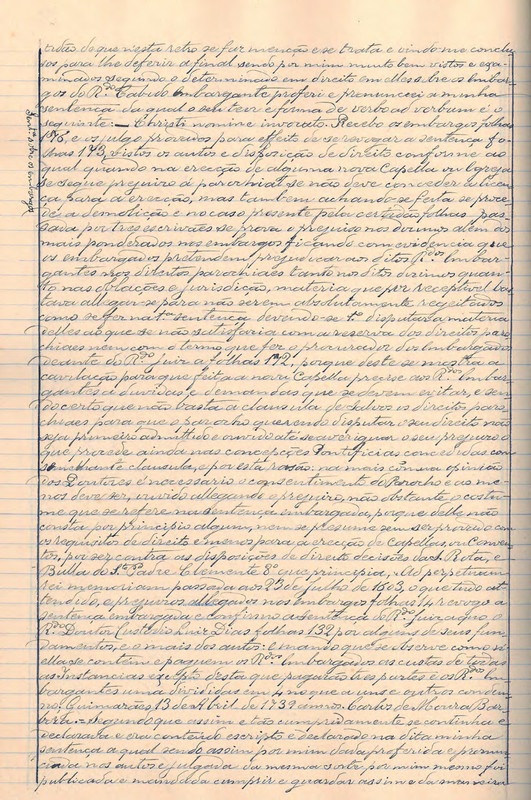 tidão do que n'esta retro se faz menção e se trata e vindo-me conclu
sos para lhe deferir afinal sendo por mim muito bem vistos e exa-
minados segundo o determinado em direito em elles sobre os embar-
gos do R.do Cabido embargante proferi e pronunciei a minha
sentença da qual o seu teor e forma de verbo ad verbum é o
seguinte: — Christi nomine invocato. Recebo os embargos folhas
178, e os julgo provados para effeito de se revogar a sentença fo-
lhas 173, vistos os autos e disposição de direito conforme ao
qual quando na erecção de alguma nova Capella ou Igreja
se segue prejuizo á parochial se não deve conceder a licen
ça para a erecção, mas tambem achando-se feita se proce
de á demolição e no caso presente pela certidão folhas pas-
sada por tres escrivães se prova o prejuizo nos dizimos alem dos
mais ponderados nos embargos ficando com evidencia que
os embargados pretendem prejudicar aos ditos R.dos Embar-
gantes nos direitos parochiaes tanto nos ditos dizimos quan-
to nas oblações e jurisdição, materia que por receptivel bas
tava allegar-se para não serem absolutamente regeitados
como se fez na t.e sentença devendo-se disputar a materia
d'elles ao que se não satisfazia com a reserva dos direitos paro
chiaes nem com o termo que fez o procurador dos Embargados
deante do R.do Juiz a folhas 172, porque d'este se mostra a
cavilação para que feita a nova Capella precise aos R.dos Embar
gantes a duvidas e demandas que se devem evitar, e sen
do certo que não basta a clausula de salvos os direitos paro-
chiaes para que o parocho querendo disputar o seu direito não
seja primeiro admittido e ouvido até se averiguar o seu prejuizo o
que procede ainda nas concepções Pontificias concedidas com
semelhante clausula, e por esta rasão: na mais cõmua opinião
dos Doutores é necessario o consentimento do Parocho e ao me
nos deve ser ouvido allegando o prejuizo, não obstante o costu-
me que se refere na sentença embargada, porque d'elle não
consta por principio algum, nem se presume sem ser provado com
os requisitos de direito e menos para a erecção de Capellas, ou Conven
tos, por ser contra as disposições de direito decisões da S. Rota, e
Bulla do S.to Padre Clemente 8.º que principia, Ad perpetuam
rei memoriam passada aos 23 de Julho de 1603, o que tudo at-
tendido, e prejuizos allegados nos embargos folhas 14 revogo a
sentença embargada e confirmo a sentença do R.do Juiz a quo o
R.do Doutor Custodio Luiz Dias folhas 132 por alguns de seus fun-
damentos, e o mais dos autos: e mando que se observe como n'
ella se contém e paguem os R.dos Embargados as custas de todas
as Instancias excepto desta que pagarão tres partes e os R.dos Em
bargantes uma divididas em 4 no que a uns e outros conde-
no. Guimarães, 13 de Abril de 1739 annos. Carlos de Moura Bar-
beza. = Segundo que assim e tão cumpridamente se continha e
declarada e era contendo escripto e declarado na dita minha
sentença a qual sendo assim por mim dada proferida e pronun
ciada nos autos e julgada da mesma sorte por mim mesmo foi
publicada e mandada cumprir e guardar assim e da maneira